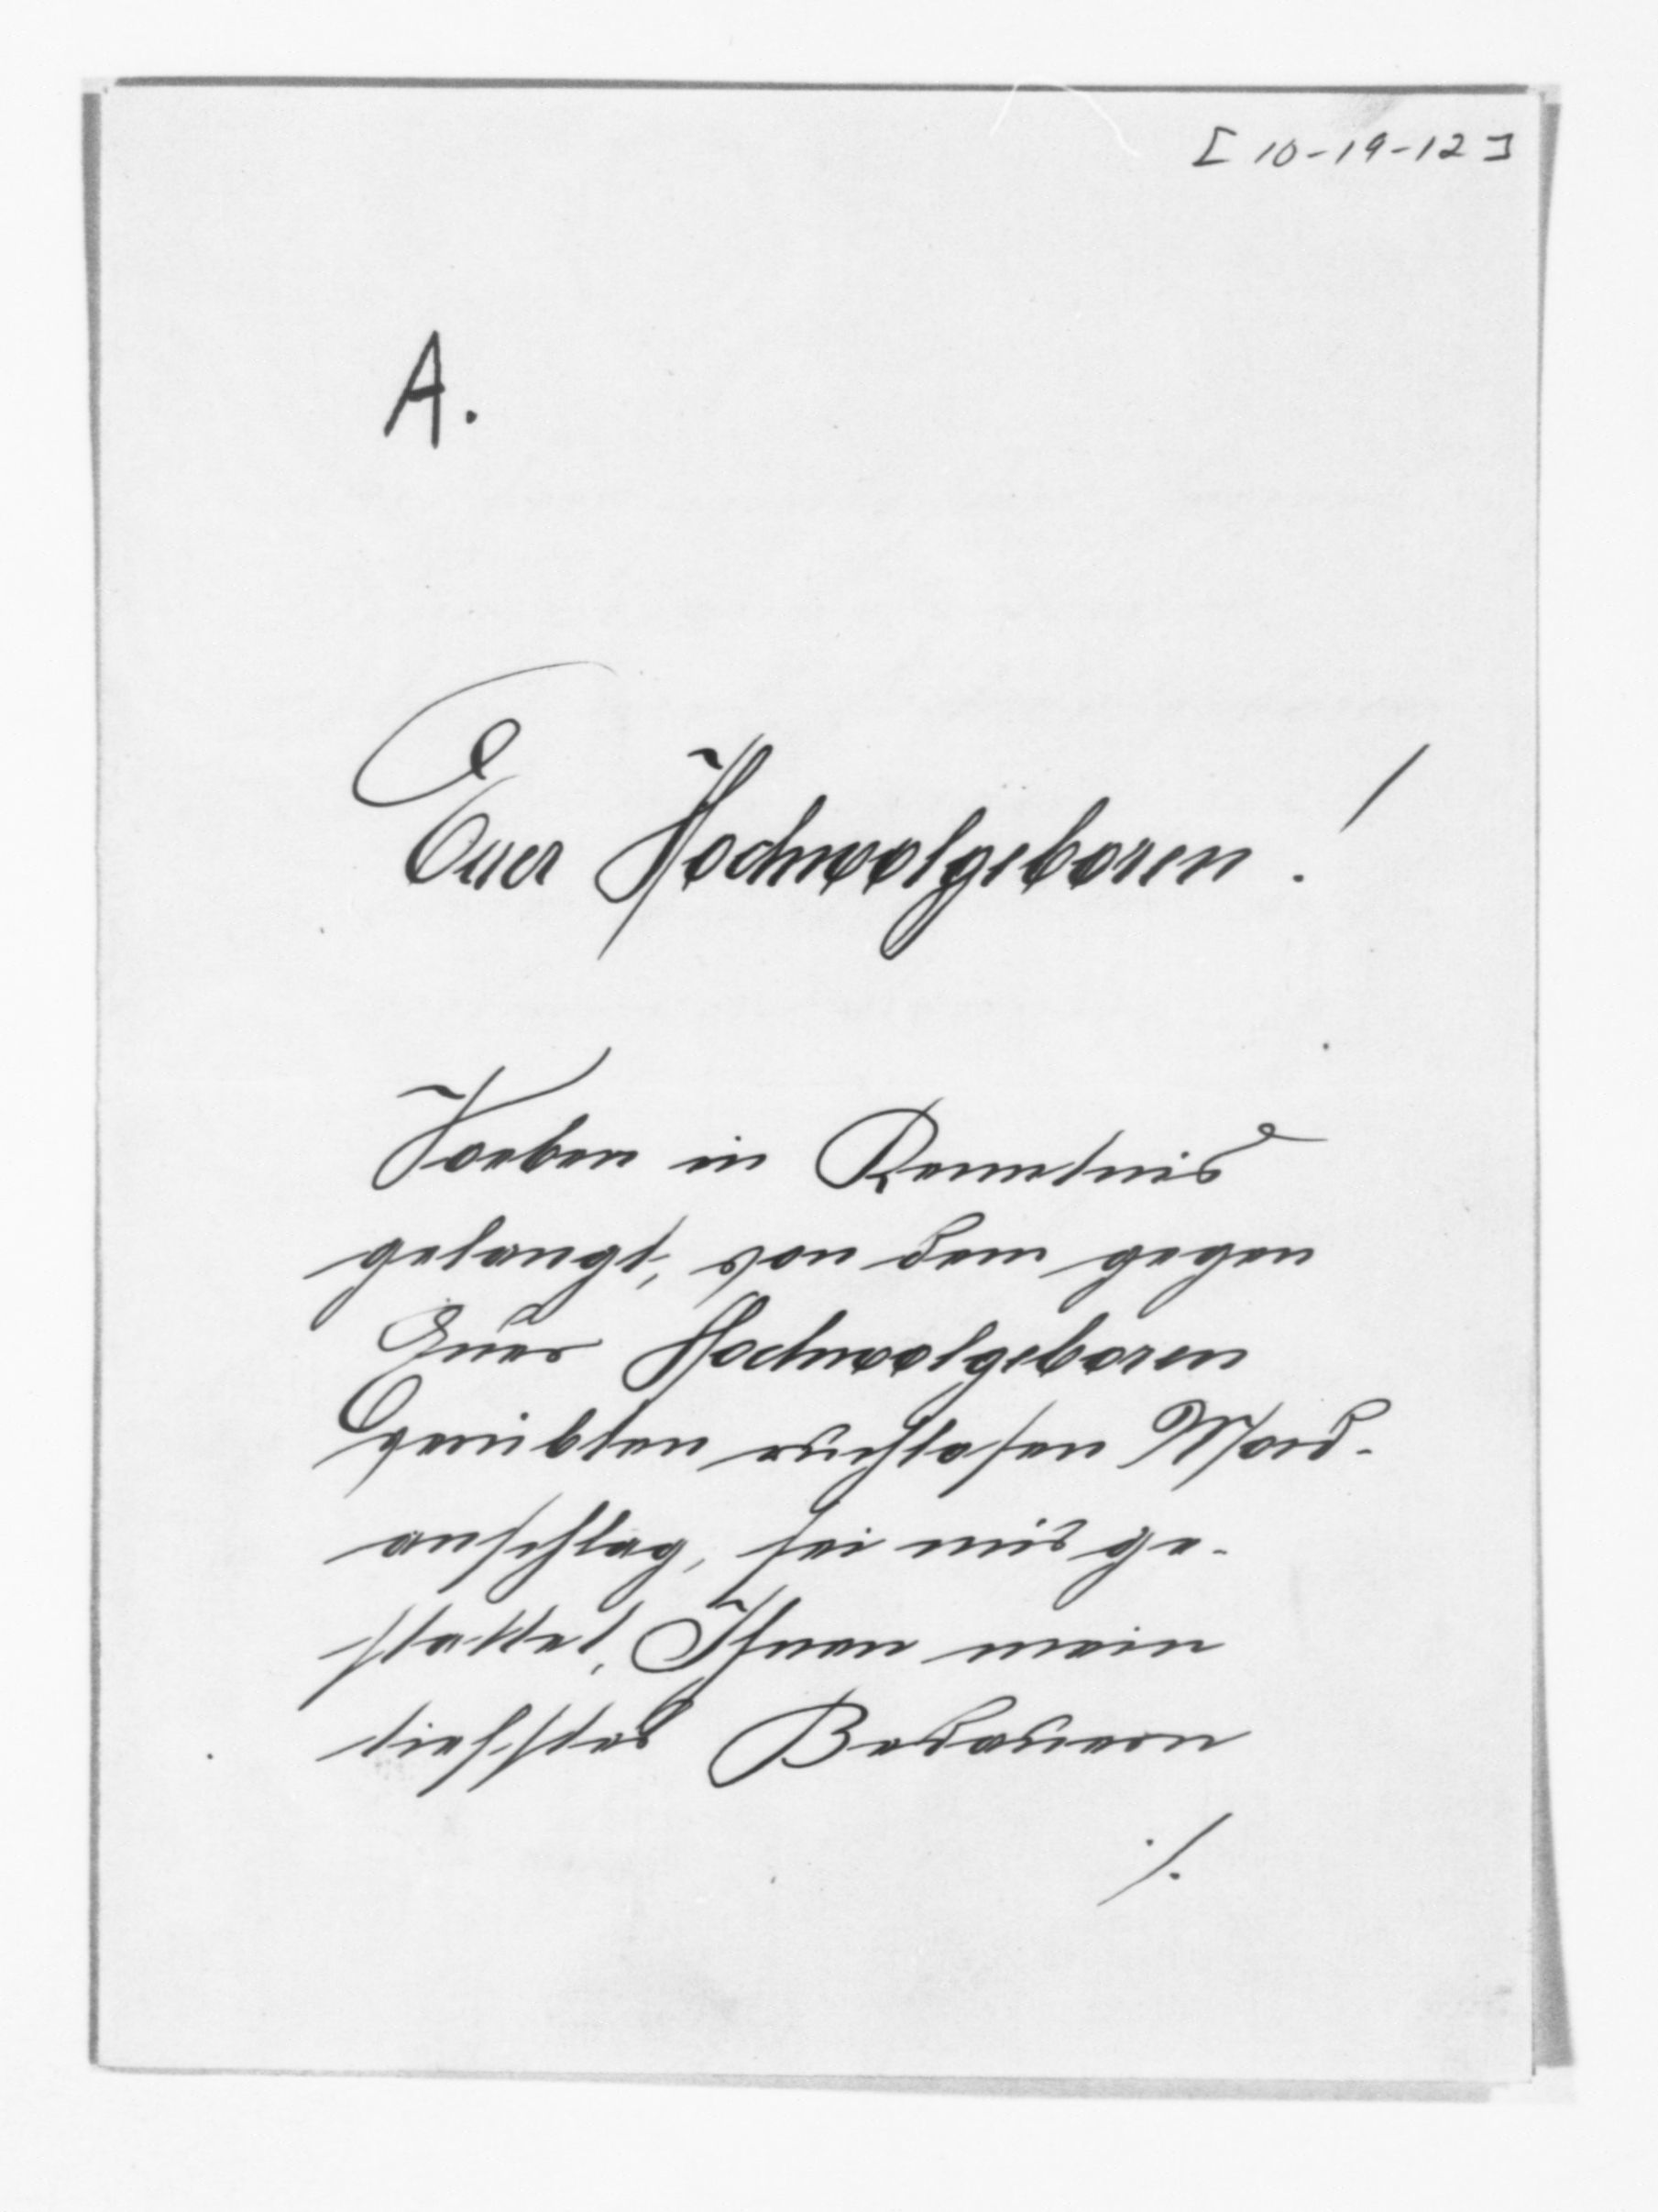 [10-19-12]
A.
Euer Hochwolgeboren!
Soeben in Kenntnis
gelangt, von dem gegen
Euer Hochwolgeboren
verübten ruchlosen Mord-
anschlag, sei mir ge-
stattet, Ihnen mein
tiefstes Bedauern
./.